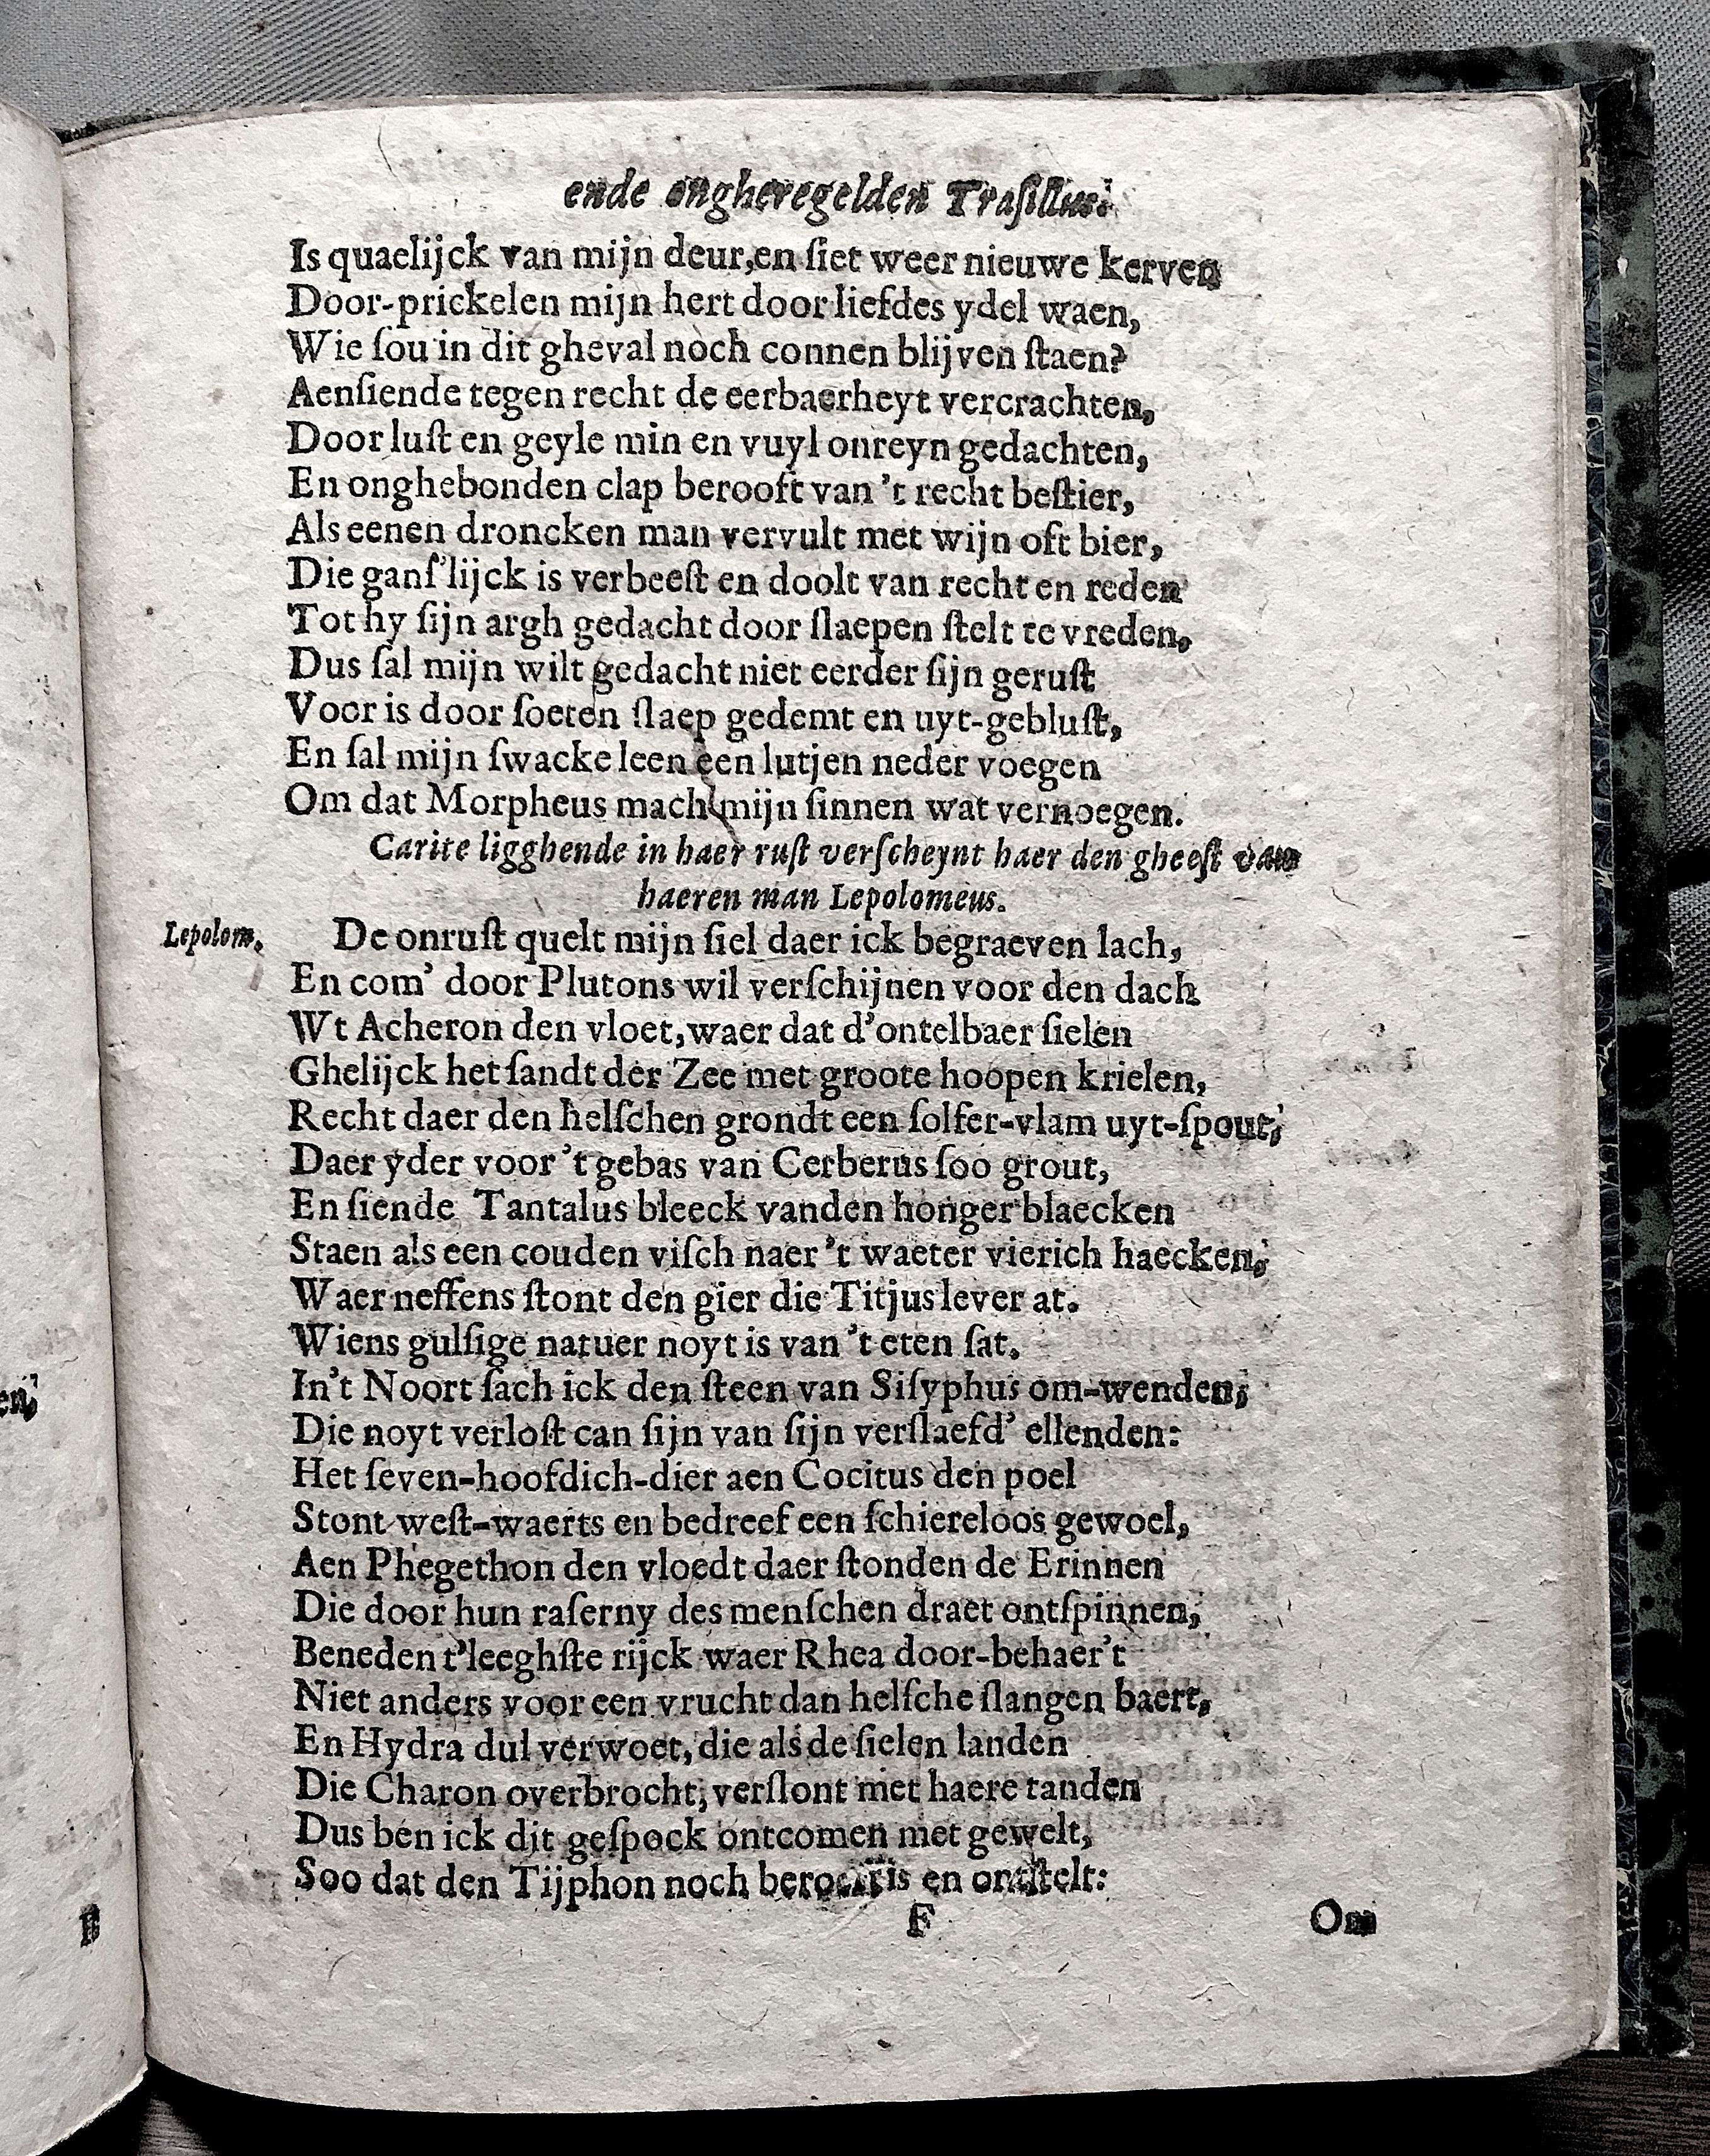 ende ongheregelden Traſillus.
Is quaelijck van mijn deur, en ſiet weer nieuwe kerven
Door-prickelen mijn hert door liefdes ydel waen,
Wie ſou in dit gheval noch connen blijven ſtaen?
Aenſiende tegen recht de eerbaerheyt vercrachten,
Door luſt en geyle min en vuyl onreyn gedachten,
En onghebonden clap berooft van 't recht beſtier,
Als eenen droncken man vervult met wijn oft bier,
Die ganſ'lijck is verbeeſt en doolt van recht en reden
Tot hy ſijn argh gedacht door ſlaepen ſtelt te vreden,
Dus ſal mijn wilt gedacht niet eerder ſijn geruſt
Voor is door ſoeten ſlaep gedemt en uyt-gebluſt,
En ſal mijn ſwacke leen een lutjen neder voegen
Om dat Morpheus mach mijn ſinnen wat vernoegen.
Carite ligghende in haer ruſt verſcheynt haer den gheeſt van
haeren man Lepolomeus.
Lepolom. De onruſt quelt mijn ſiel daer ick begraeven lach,
En com' door Plutons wil verſchijnen voor den dach
Wt Acheron den vloet, waer dat d'ontelbaer ſielen
Ghelijck het ſandt der Zee met groote hoopen krielen,
Recht daer den helſchen grondt een ſolfer-vlam uyt-ſpout,
Daer yder voor 't gebas van Cerberus ſoo grout,
En ſiende Tantalus bleeck vanden honger blaecken
Staen als een couden viſch naer 't waeter vierich haecken,
Waer neffens ſtont den gier die Titjus lever at.
Wiens gulſige natuer noyt is van 't eten ſat.
In't Noort ſach ick den ſteen van Siſyphus om-wenden,
Die noyt verloſt can ſijn van ſijn verſlaefd' ellenden:
Het ſeven-hoofdich-dier aen Cocitus den poel
Stont weſt-waerts en bedreef een ſchiereloos gewoel,
Aen Phegethon den vloedt daer ſtonden de Erinnen
Die door hun raſerny des menſchen draet ontſpinnen,
Beneden t'leeghſte rijck waer Rhea door-behaer't
Niet anders voor een vrucht dan helſche ſlangen baert,
En Hydra dul verwoet, die als de ſielen landen
Die Charon overbrocht, verſlont met haere tanden
Dus ben ick dit geſpock ontcomen met gewelt,
Soo dat den Tijphon noch is en ontſtelt:
F Om